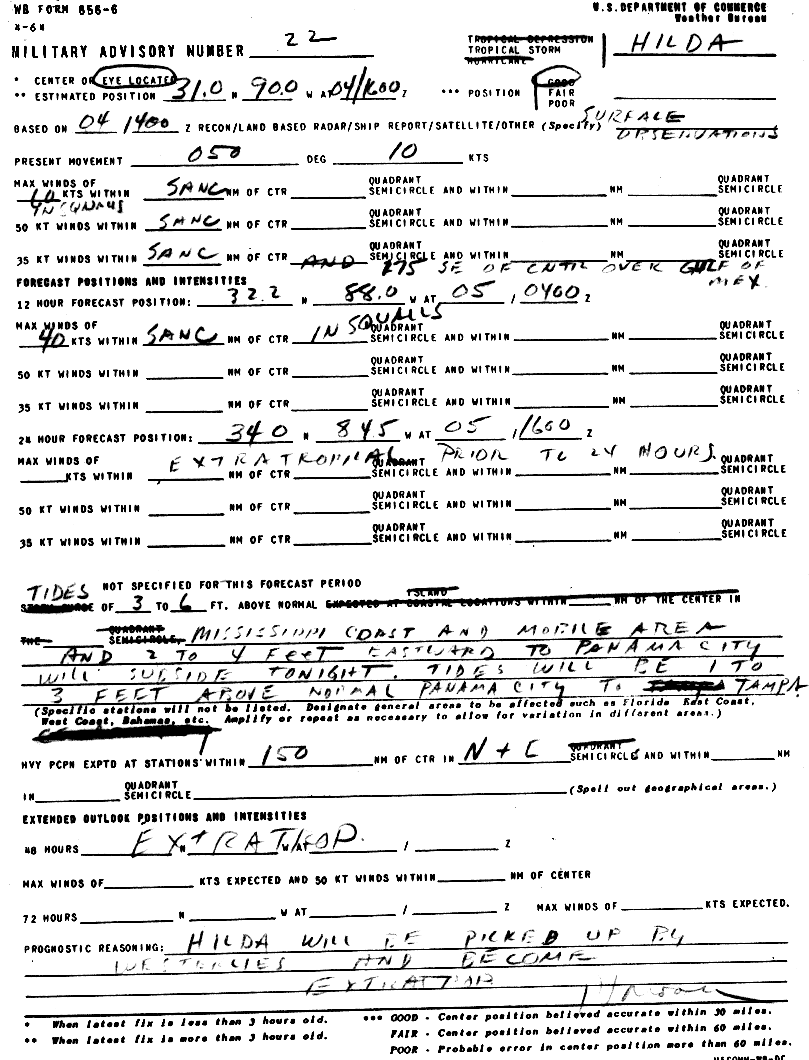 WB FORM 656-6
U.S. DEPARTMENT OF COMMERCE
Weather Bureau
MILITARY ADVISORY NUMBER 22
TROPICAL DEPRESSION
TROPICAL STORM HILDA
HURRICANE
* CENTER OR EYE LOCATED
** ESTIMATED POSITION 31.0 N 90.0 W AT 04/1600 Z *** POSITION GOOD
FAIR
POOR
BASED ON 04 1400 Z RECON/LAND BASED RADAR/SHIP REPORT/SATELLITE/OTHER (Specify) SURFACE
OBSERVATIONS
PRESENT MOVEMENT 050 DEG 10 KTS
MAX WINDS OF QUADRANT QUADRANT
KTS WITHIN SANC NM OF CTR SEMICIRCLE AND WITHIN NM SEMICIRCLE
IN SQUALLS
QUADRANT QUADRANT
50 KT WINDS WITHIN SANC NM OF CTR SEMICIRCLE AND WITHIN NM SEMICIRCLE
QUADRANT QUADRANT
35 KT WINDS WITHIN SANC NM OF CTR AND SEMICIRCLE AND WITHIN NM SEMICIRCLE
175 SE OF CNTR OVER GULF OF
MEX.
FORECAST POSITIONS AND INTENSITIES
12 HOUR FORECAST POSITION: 32.2 N 88.0 W AT 05 / 0400 Z
MAX WINDS OF QUADRANT QUADRANT
40 KTS WITHIN SANC NM OF CTR IN SQUALLS SEMICIRCLE AND WITHIN NM SEMICIRCLE
QUADRANT QUADRANT
50 KT WINDS WITHIN NM OF CTR SEMICIRCLE AND WITHIN NM SEMICIRCLE
QUADRANT QUADRANT
35 KT WINDS WITHIN NM OF CTR SEMICIRCLE AND WITHIN NM SEMICIRCLE
24 HOUR FORECAST POSITION: 34.0 N 84.5 W AT 05 / 1600 Z
MAX WINDS OF EXTRATROPICAL QUADRANT PRIOR TO 24 HOURS. QUADRANT
KTS WITHIN NM OF CTR SEMICIRCLE AND WITHIN NM SEMICIRCLE
QUADRANT QUADRANT
50 KT WINDS WITHIN NM OF CTR SEMICIRCLE AND WITHIN NM SEMICIRCLE
QUADRANT QUADRANT
35 KT WINDS WITHIN NM OF CTR SEMICIRCLE AND WITHIN NM SEMICIRCLE
TIDES NOT SPECIFIED FOR THIS FORECAST PERIOD
ISLAND
STORM SURGE OF 3 TO 6 FT. ABOVE NORMAL EXPECTED AT COASTAL LOCATIONS WITHIN NM OF THE CENTER IN
QUADRANT
THE SEMICIRCLE, MISSISSIPPI COAST AND MOBILE AREA
AND 2 TO 4 FEET EASTWARD TO PANAMA CITY
WILL SUBSIDE TONIGHT. TIDES WILL BE 1 TO
3 FEET ABOVE NORMAL PANAMA CITY TO TAMPA TAMPA
(Specific stations will not be listed. Designate general areas to be affected such as Florida East Coast,
West Coast, Bahamas, etc. Amplify or repeat as necessary to allow for variation in different areas.)
QUADRANT
HVY PCPN EXPTD AT STATIONS WITHIN 150 NM OF CTR IN N + E SEMICIRCLES AND WITHIN NM
QUADRANT
IN SEMICIRCLE (Spell out geographical areas.)
EXTENDED OUTLOOK POSITIONS AND INTENSITIES
48 HOURS EXTRATROP. N W AT / Z
MAX WINDS OF KTS EXPECTED AND 50 KT WINDS WITHIN NM OF CENTER
72 HOURS N W AT / Z MAX WINDS OF KTS EXPECTED.
PROGNOSTIC REASONING: HILDA WILL BE PICKED UP BY
WESTERLIES AND BECOME
EXTRATROP
* When latest fix is less than 3 hours old.
** When latest fix is more than 3 hours old.
*** GOOD - Center position believed accurate within 30 miles.
FAIR - Center position believed accurate within 60 miles.
POOR - Probable error in center position more than 60 miles.
USCOMM-WB-DC